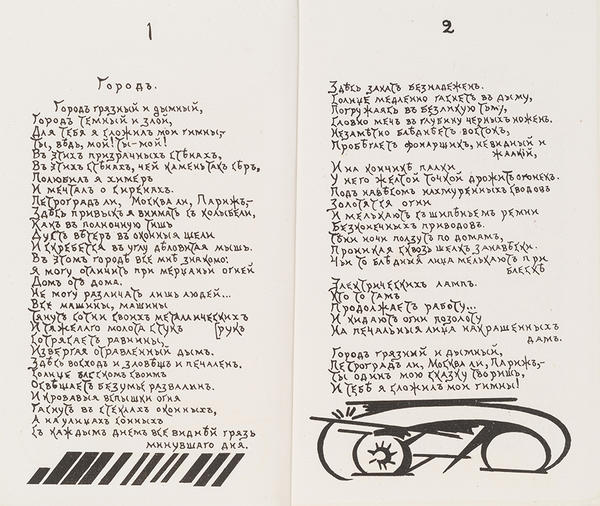 1
Городъ.
Городъ грязный и дымный,
Городъ темный и злой,
Для тебя я сложилъ мои гимны,-
Ты, ведь, мой! Ты-мой!
Въ этихъ призрачныхъ стѣнахъ,
Въ этихъ стѣнахъ, чей каменьтахъ сѣръ,
Полюбилъ я химеръ
И мечталъ о сиренахъ.
Петроградъ ли, Москва ли, Парижъ,-
Здѣсь привыкъ я внимать съ колыбели,
Какъ въ полночную тишь
Дуетъ вѣтеръ въ оконныя щели
И скребется въ углу дѣловитая мышь.
Въ этомъ городѣ все мнѣ знакомо:
Я могу отличить при мерцаньи огней
Домъ отъ дома.
Не могу различать лишь людей...
Все машины, машины
Тянутъ сотни своихъ металлическихъ
рукъ
И тяжелаго молота стукъ
Сотрясаетъ равнины,
Извергая отравленный дымъ.
Здѣсь восходъ и зловѣщъ и печаленъ.
Солнце блескомъ своимъ
Освѣщаетъ безумье развалинъ.
И кровавыя вспышки огня
Гаснутъ въ стеклахъ оконныхъ,
А на улицахъ сонныхъ
Съ каждымъ днемъ все виднѣй грязь
минувшаго дня.
2
Здѣсь закатъ безнадеженъ.
Солнце медленно гаснетъ въ дыму,
Погружаясь въ безликую тьму,
Словно мечъ въ глубину черныхъ ноженъ.
Незамѣтно блѣднѣетъ востокъ,
Пробѣгаетъ фонарщикъ, невидный и
жалкій,
И на кончикѣ палки
У него желтой точкой дрожитъ огонекъ.
Подъ навѣсомъ нахмуренныхъ сводовъ
Золотятся огни
И мелькаютъ съ шипѣньемъ ремни
Безконечныхъ приводовъ.
Тѣни ночи ползутъ по домамъ,
Проникая сквозь шелкъ занавѣски.
Чьи то блѣдныя лица мелькаютъ при
блескѣ
Электрическихъ лампъ.
Кто то тамъ
Продолжаетъ работу...
И кидаютъ огни позолоту
На печальныя лица накрашенныхъ
дамъ.
Городъ грязный и дымный,
Петроградъ ли, Москва ли, Парижъ,-
Ты одинъ мою сказку творишь,
И тебѣ я сложилъ мои гимны!